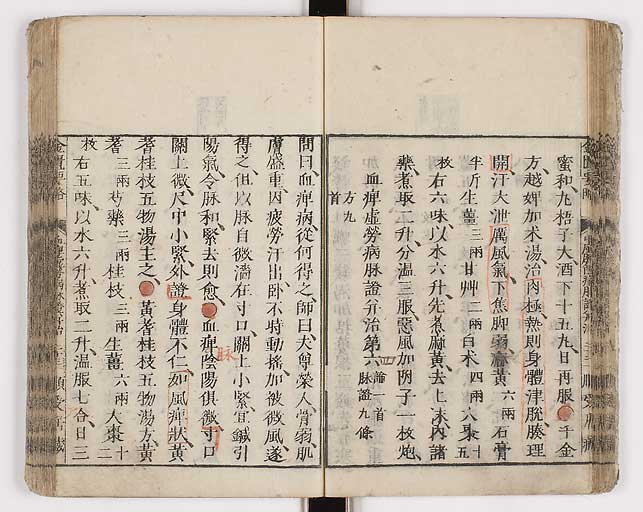 蜜和九梧子大酒下十五九日再服千金
方越婢加朮湯治肉極熱則身體津脫腠理
開汗大泄厲風氣下焦脚弱麻黃六兩石膏
半斤生薑三兩甘艸二兩白朮四兩大棗十五
枚右六味以水六升先煮麻黃去上沫內諸
藥煮取三升分溫三服惡風加附子一枚炮
血痺虛勞病脉證并治第六論一首脉證九條
方九首
問曰血痺病從何得之師曰夫尊榮人骨弱肌
膚盛重因疲勞汗出臥不時動搖加被微風遂
得之但以脉自微濇在寸口關上小緊宜鍼引
陽氣令脉和緊去則愈血痺陰陽俱微寸口
關上微尺中小緊外證身體不仁如風痺狀黃
耆桂枝五物湯主之黃耆桂枝五物湯方黃
耆三兩芍藥三兩桂枝三兩生薑六兩大棗十二
枚右五味以水六升煮取二升溫服七合日三
脉